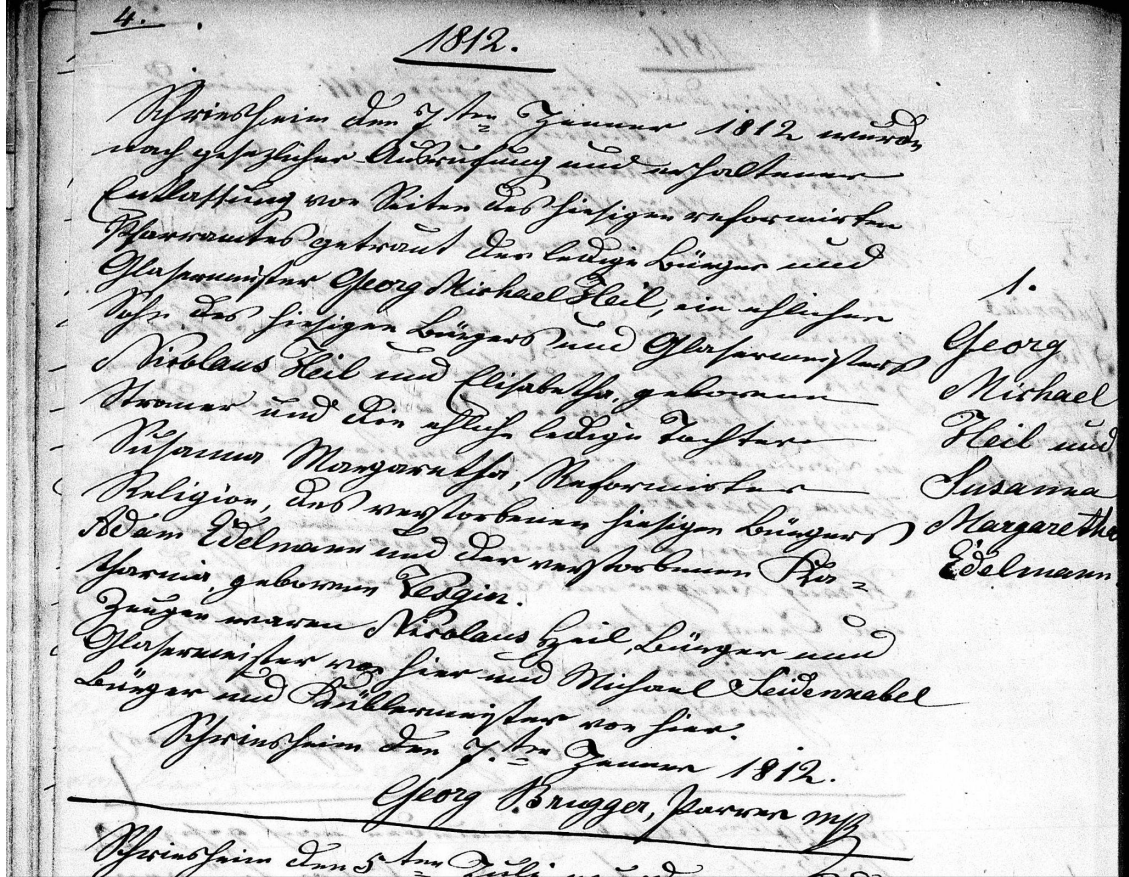 4.
1812.
Schriesheim den 7ten Jenner 1812 wurde
nach gesezlicher Ausrufung und erhaltener
Entlassung von Seiten des hiesigen reformirten
Pfarramtes getraut der ledige Bürger und
Glasermeister Georg Michael Heil, ein ehlicher
Sohn des hiesigen Bürgers und Glasermeisters
Nicolaus Heil und Elisabetha, geborene
Stromer und die ehlich ledige Tochter
Susanna Margaretha, Reformirter
Religion, des verstorbenen hiesigen Bürgers
Adam Edelmann und der verstorbenen Ka=
tharina, geborene
Zeugen waren Nicolaus Heil, Bürger und
Glasermeister von hier und Michael Seidennabel
Bürger und von hier.
Schriesheim den 7.ten Jenner 1812.
Georg Brugger, Pfarrer
1.
Georg
Michael
Heil und
Susanna
Margaretha
Edelmann
Schriesheim den 5ten Juli wurde